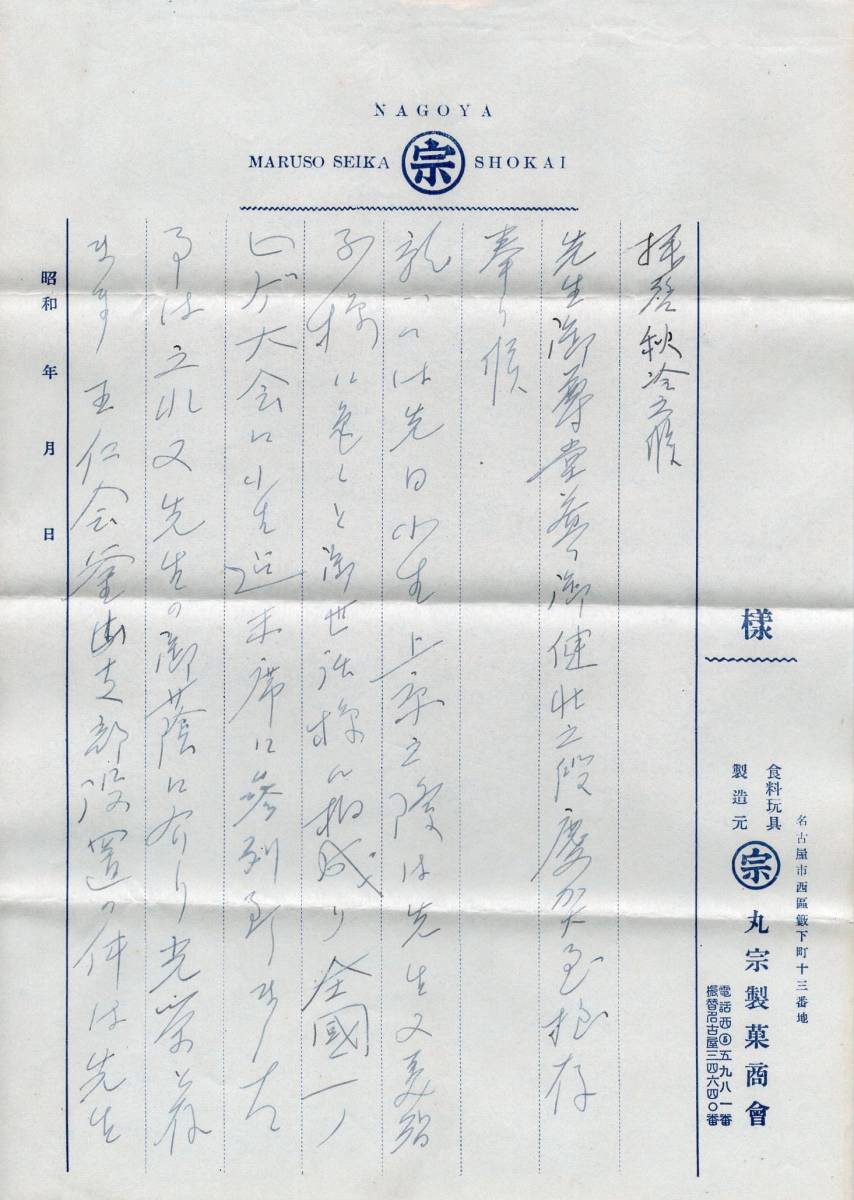 NAGOYA
MARUSO SEIKA 宗 SHOKAI
名古屋市西區籔下町十三番地
食料玩具
製造元
宗 丸宗製菓商會
電話西⑤五九八一番
振替名古屋三四六四〇番
樣
拝啓秋冷之候
先生御尊堂益々御健壮之段慶賀至極存
奉り候
就いては先日小生上京之際は先生又美智
子様に色々と御世話様に相成り全國一ノ
大会に小生迄末席に参列致しました
事は之れ又先生の御蔭に介り光栄と存
ます 王仁会釜山支部設置の件は先生
昭和 年 月 日